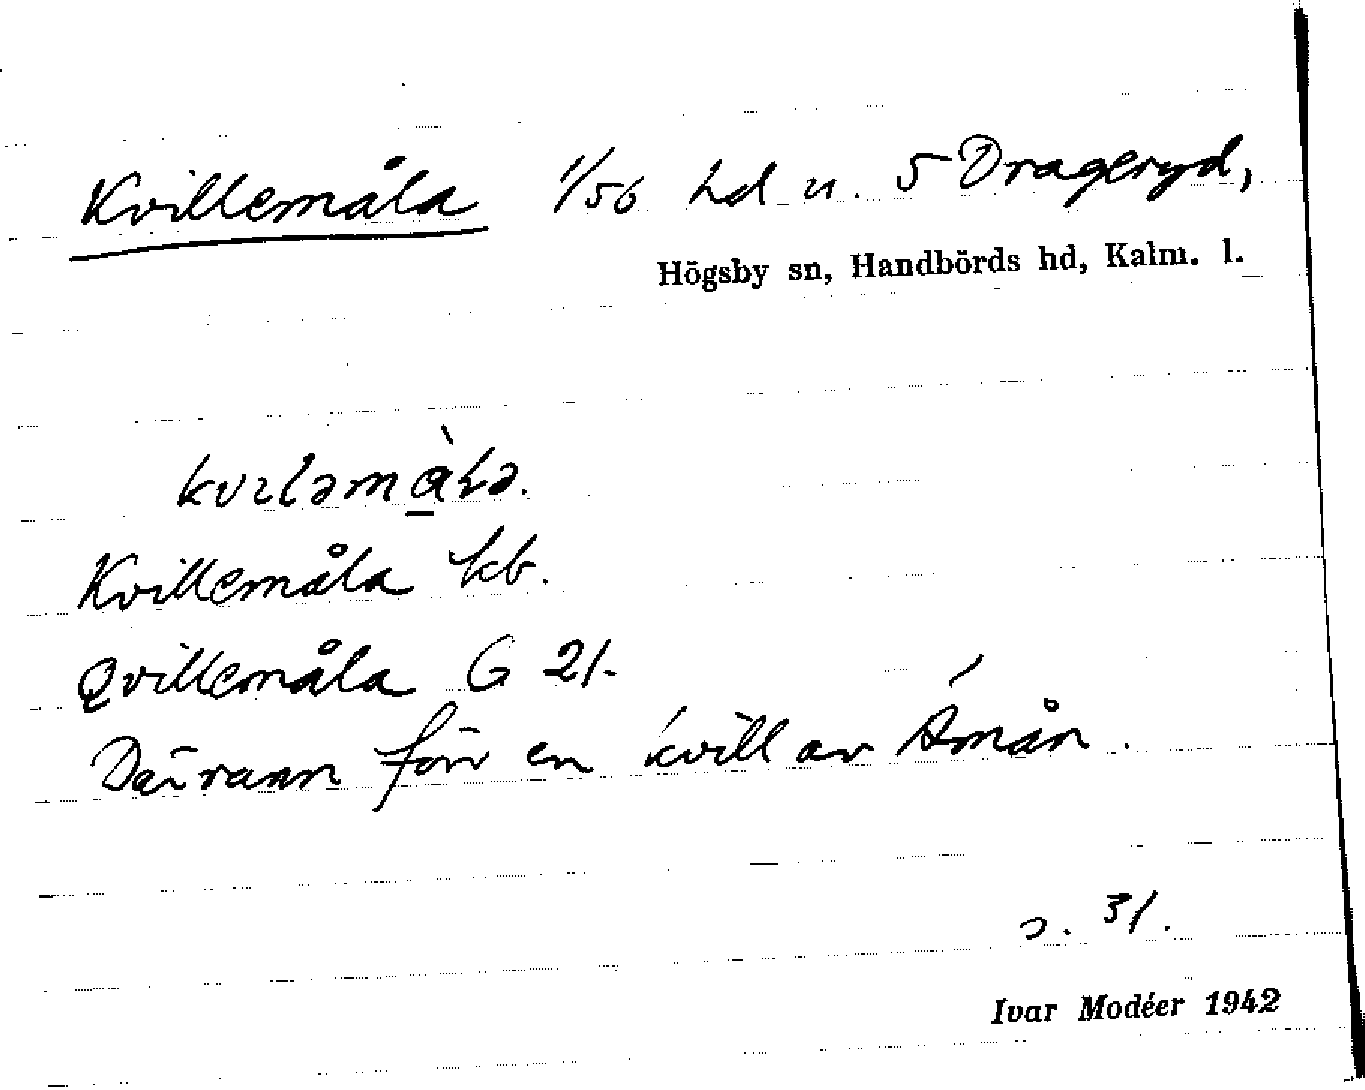 Kvillemåla 1/56 hd u. 5 Drageryd,
Högsby sn, Handbörds hd, Kalm. l.
Kvillemåla kb.
Qvillemåla G 21.
Däravan förr en kvill av Åmån.
s. 31.
Ivar Modéer 1942